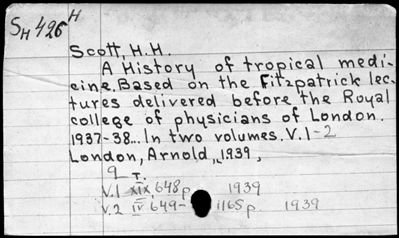 SH 426 H
Scott, H.H.
A History of tropical medi-
cine. Based on the Fitzpatrick lec-
tures delivered before the Royal
college of physicians of London.
1937-38... In two volumes. V.1-2
London, Arnold, 1939,
9 T.
V.1 XIX, 648 p. 1939
V.2 IV, 649- 1165 p. 1939